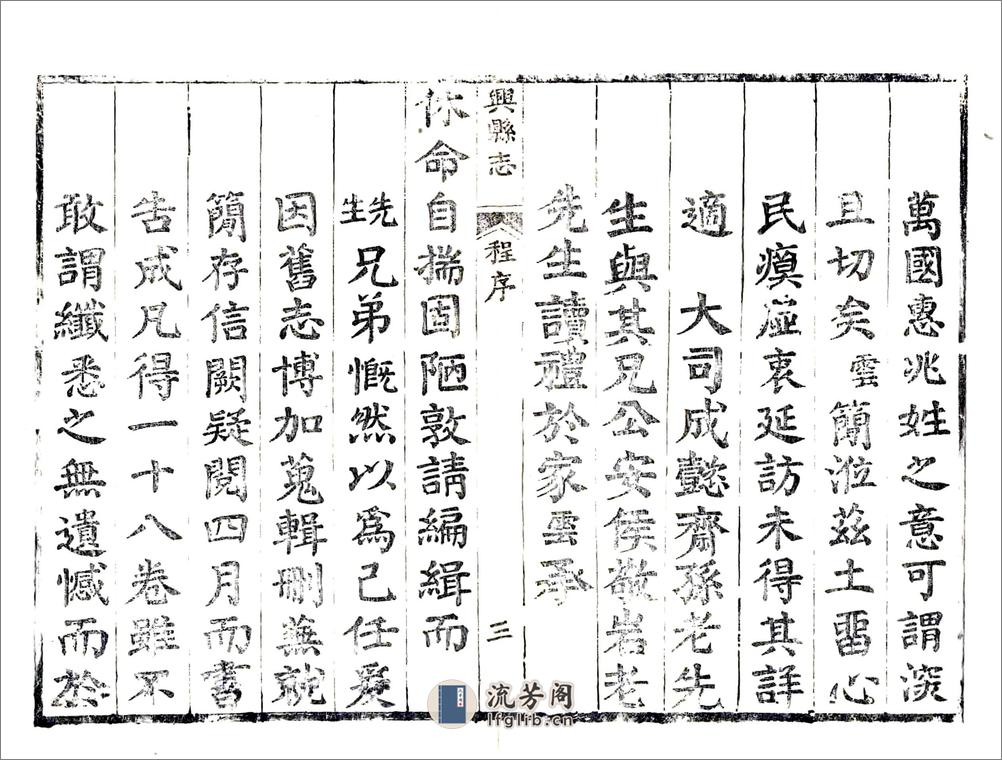 萬國惠兆姓之意可謂深
且切矣雲簡涖茲土留心
民瘼虛衷延訪未得其詳
適　大司成懿齋孫老先
生與其兄公安侯敬岩老
先生讀禮於家雲承
興縣志
程序
三
休命自揣固陋敦請編緝而
先生兄弟慨然以爲己任爰
因舊志博加蒐輯刪蕪就
簡存信闕疑閱四月而書
告成凡得一十八卷雖不
敢謂纖悉之無遺憾而於
流芳阁
lfglib.cn